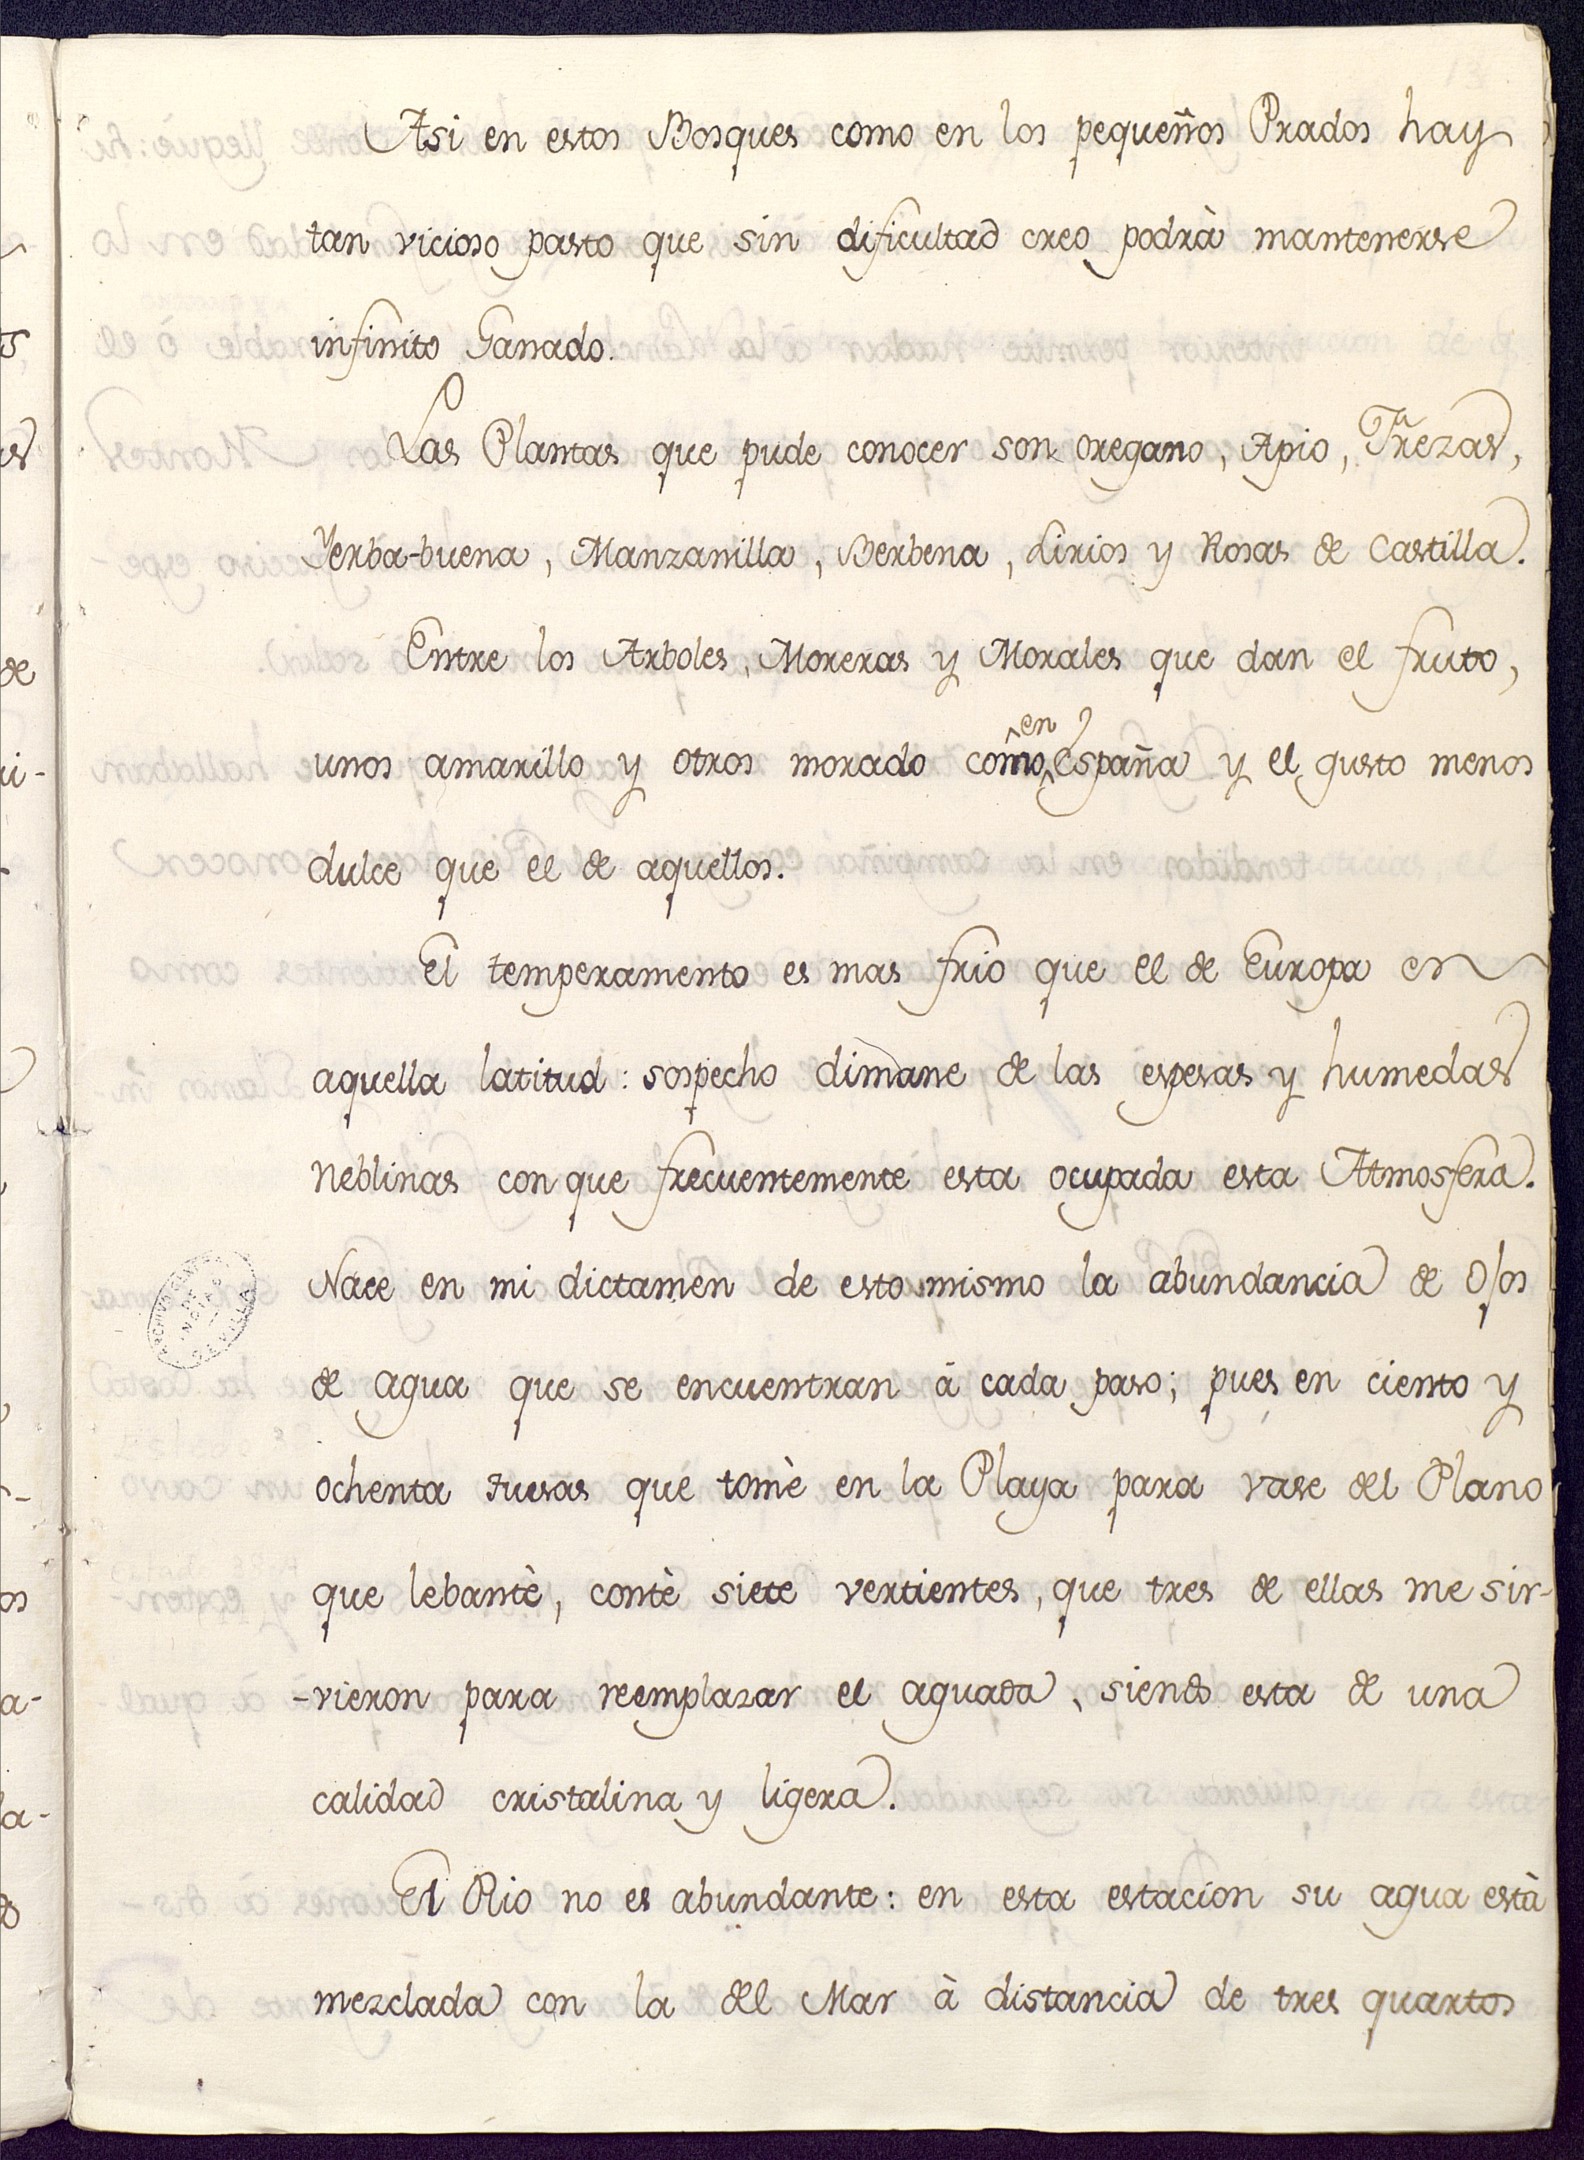 Asi en estos Bosques como en los pequeños Prados hay
tan vicioso pasto que sin dificultad creo podrà mantenerse
infinito Ganado.
Las Plantas que pude conocer son oregano, Apio,
Yerba-buena, Manzanilla, Berbena, Lirios y Rosas de Castilla.
Entre los Arboles, Moreras y Morales que dan el fruto,
unos amarillo y otros morado como en España y el gusto menos
dulce que el de aquellos.
El temperamento es mas frio que el de Europa en
aquella latitud: sospecho dimane de las espesas y humedas
Neblinas con que frecuentemente esta ocupada esta Atmosfera.
Nace en mi dictamen de esto mismo la abundancia de Ojos
de agua que se encuentran à cada paso; pues en ciento y
ochenta tuesas que tomè en la Playa para vase del Plano
que lebantè, contè siete vertientes, que tres de ellas me sir-
-vieron para reemplazar el aguada, siendo esta de una
calidad cristalina y ligera.
El Rio no es abundante: en esta estacion su agua està
mezclada con la del Mar à distancia de tres quartos
ARCHIVO GENERAL
DE
INDIAS
SEVILLA